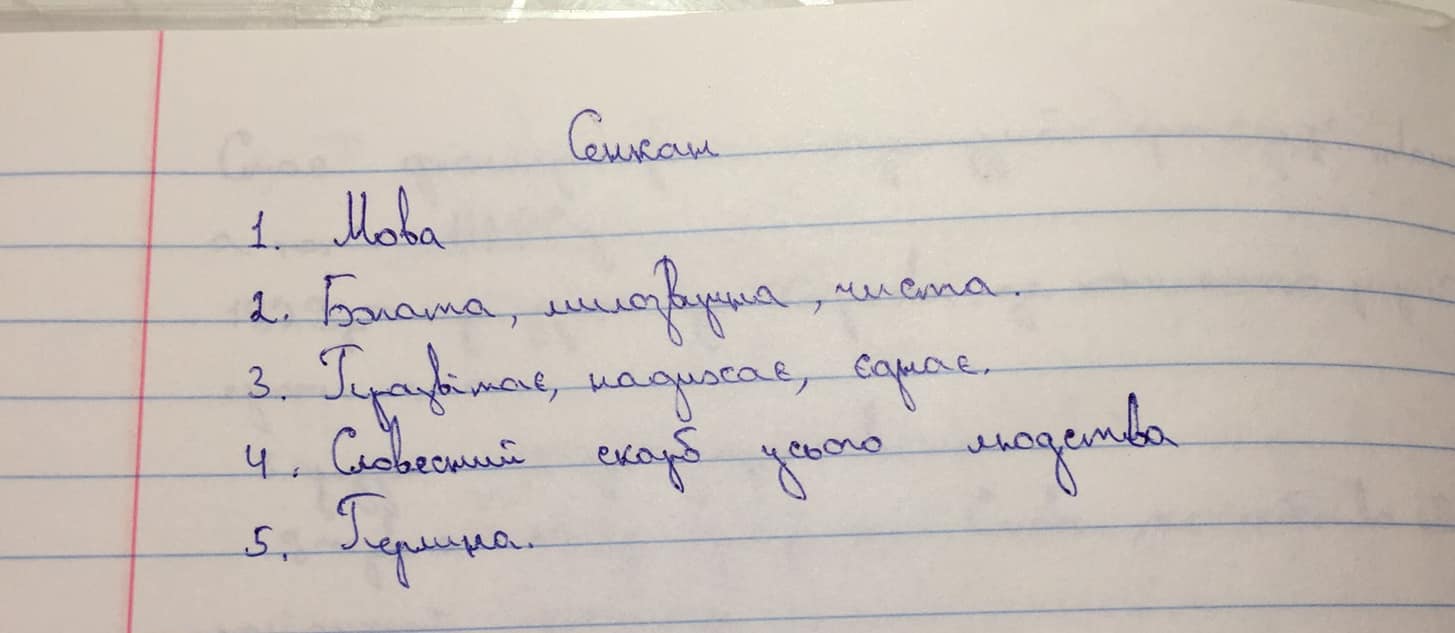 Сенкан
1. Мова
2. Багата, милозвучна, чиста.
3. Процвітає, надихає, єднає.
4. Словесний скарб усього людства
5. Перлина.